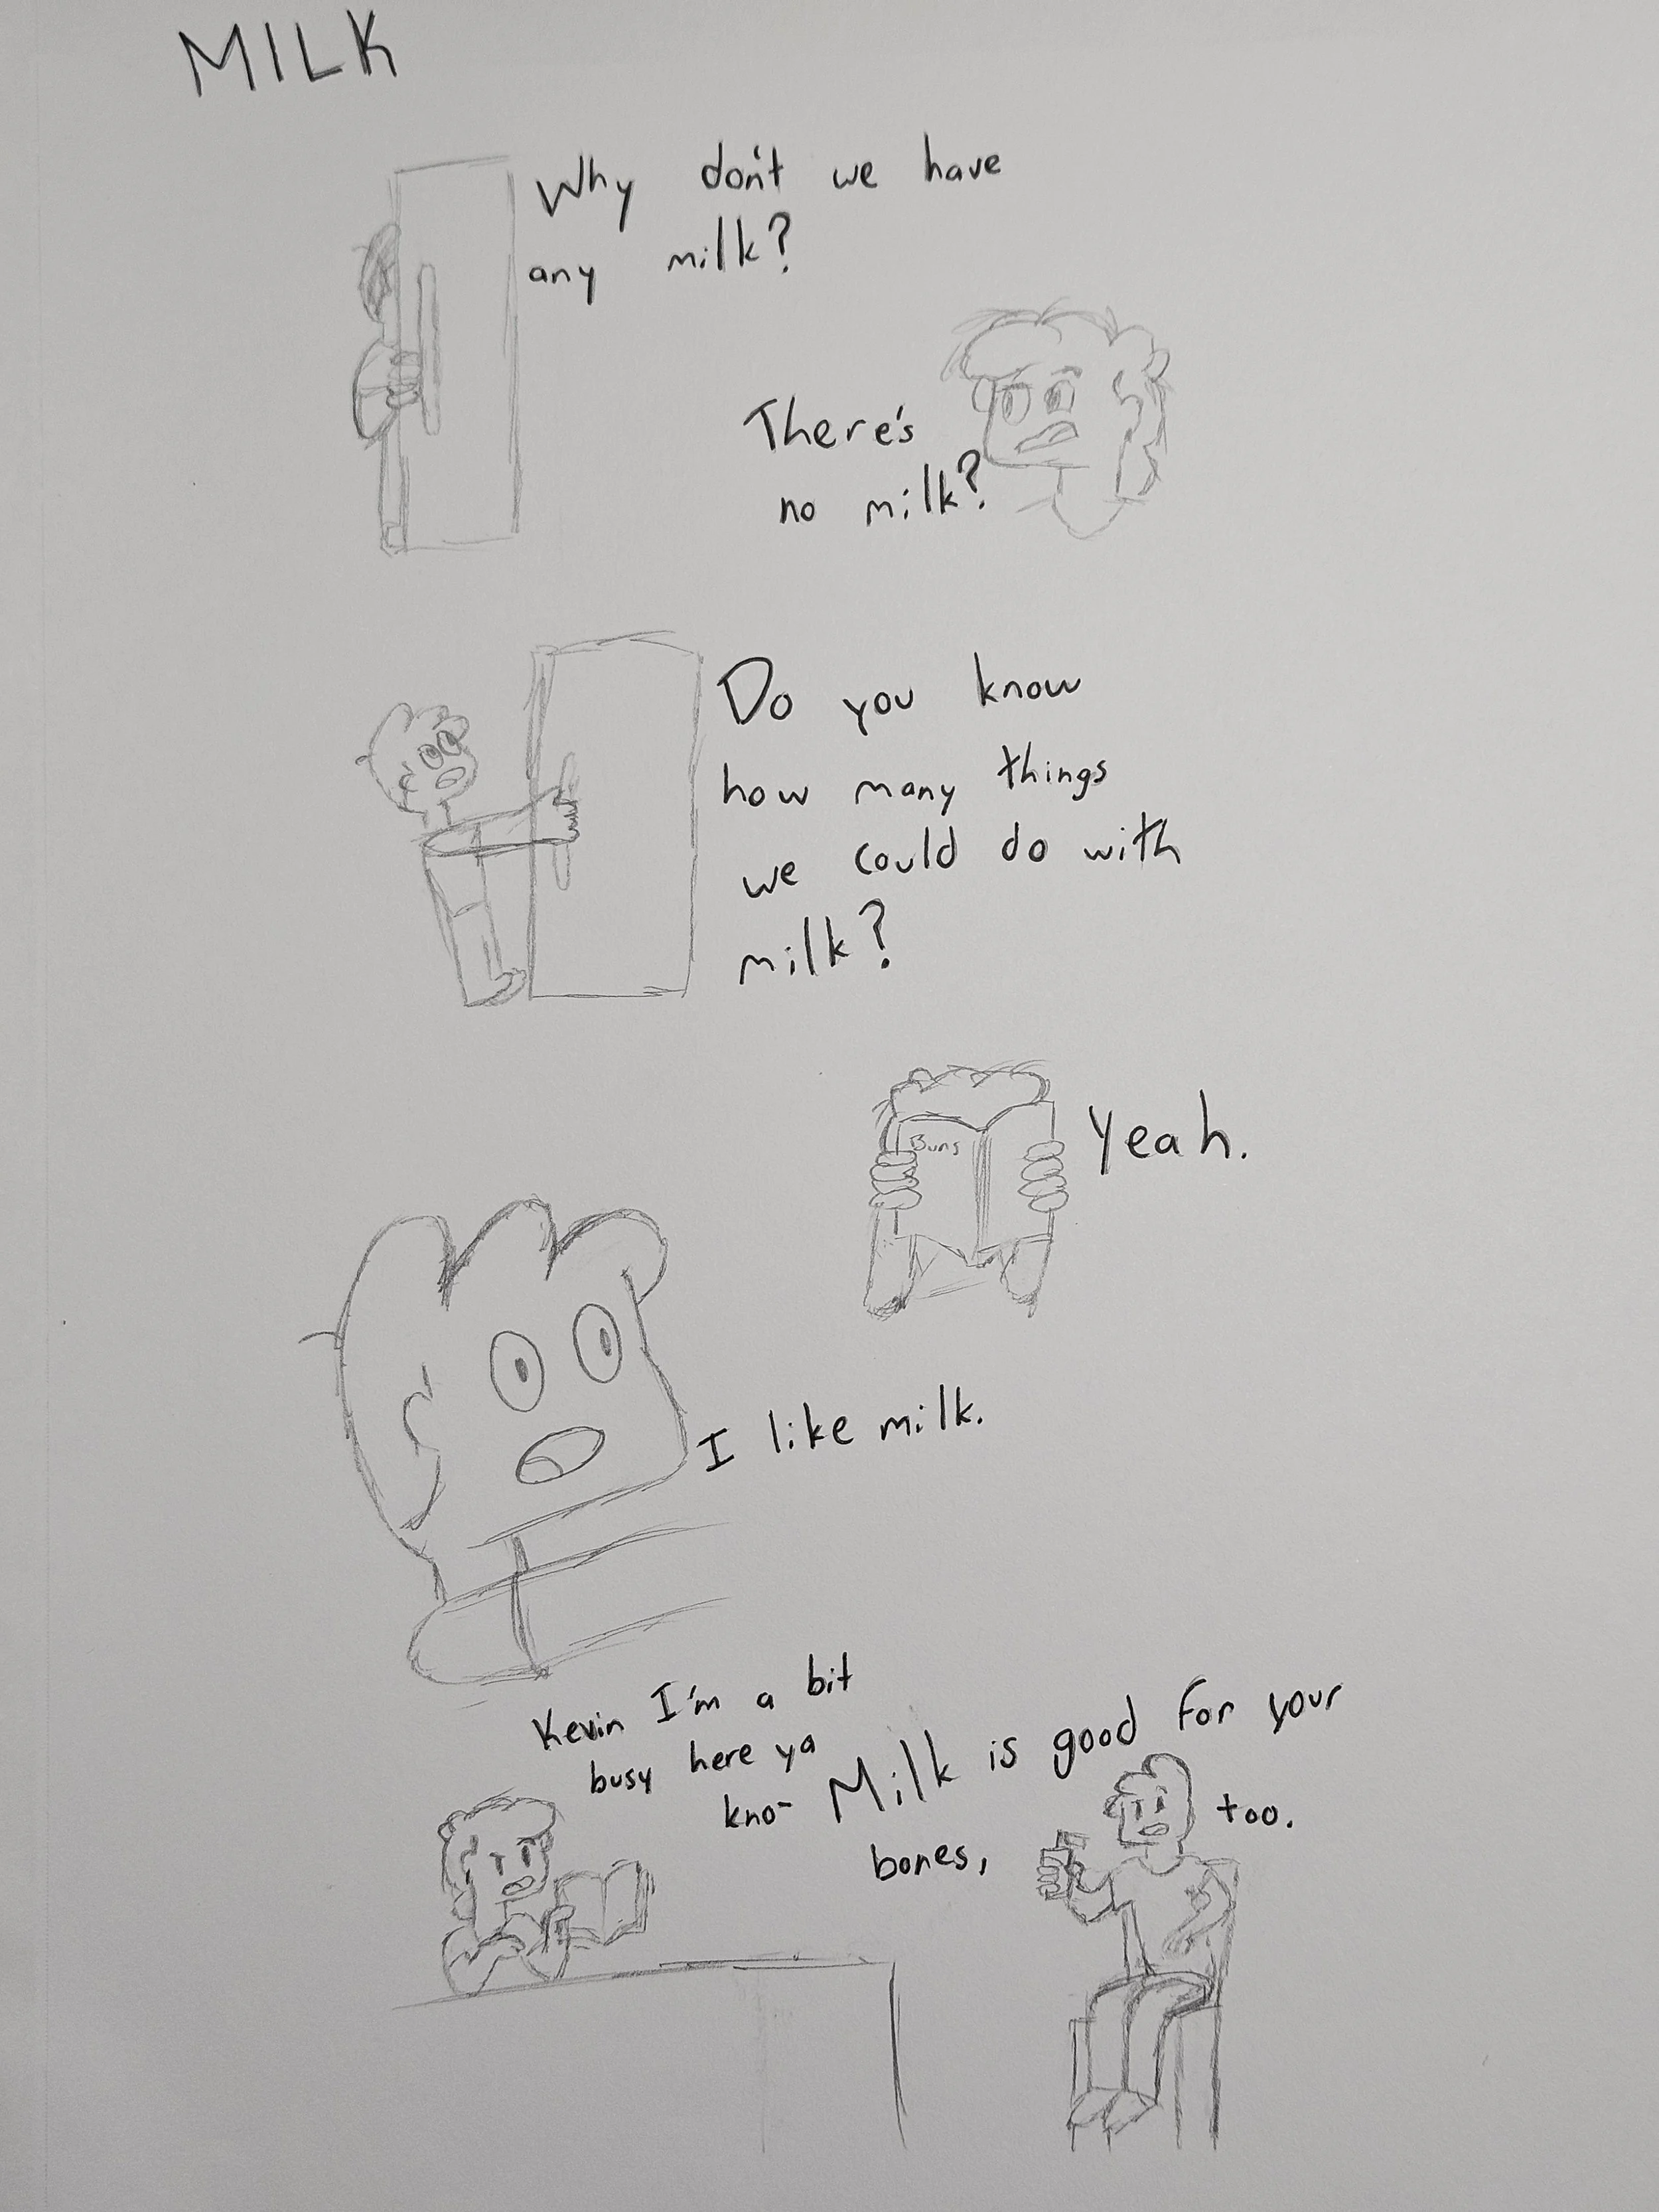 MILK
Why don't we have
any milk?
There's
no milk?
Do you know
how many things
we could do with
milk?
Buns
Yeah.
I like milk.
Kevin I'm a bit
busy here ya
kno-
Milk is good for your
bones, too.